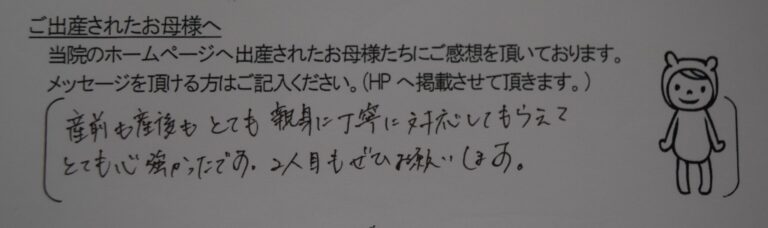 ご出産されたお母様へ
当院のホームページへ出産されたお母様たちにご感想を頂いております。
メッセージを頂ける方はご記入ください。(HPへ掲載させて頂きます。)
産前も産後もとても親身に丁寧に対応してもらえて
とても心強かったです。2人目もぜひお願いします。